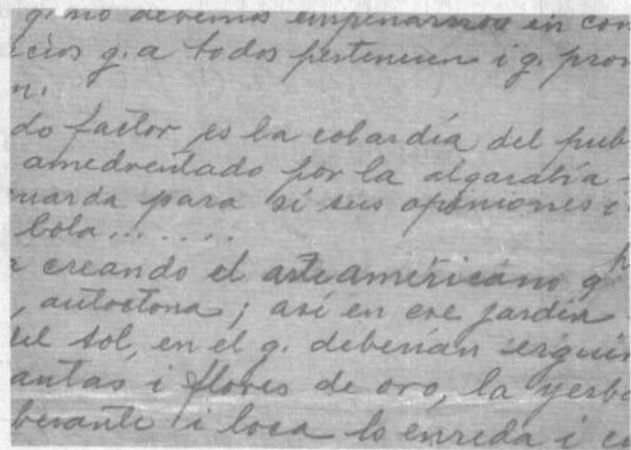 q. no debemos empeñarnos en con
cios q. a todos pertenecen i q. pro
n.
do factor es la cobardía del pub
amedrentado por la algarabía
uarda para sí sus opiniones i
bola.......
creando el arte americano q
, autoctona; asi en ese jardin
del sol, en el q. deberían erguir
antas i flores de oro, la yerba
berante i loca lo enreda i